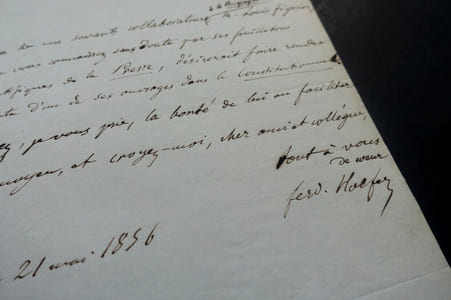 de nos savants collaborateurs, M. Louis figuier
vous connaissez sans doute par ses feuilletons
tifiques de la Presse, désirerait faire rendre
te d'un de ses ouvrages dans le Constitutionnel
ez, je vous prie, la bonté de lui en faciliter
moyen, et croyez-moi, cher ami et collègue,
tout à vous
de cœur
ferd. Hoefer
21 mai 1856